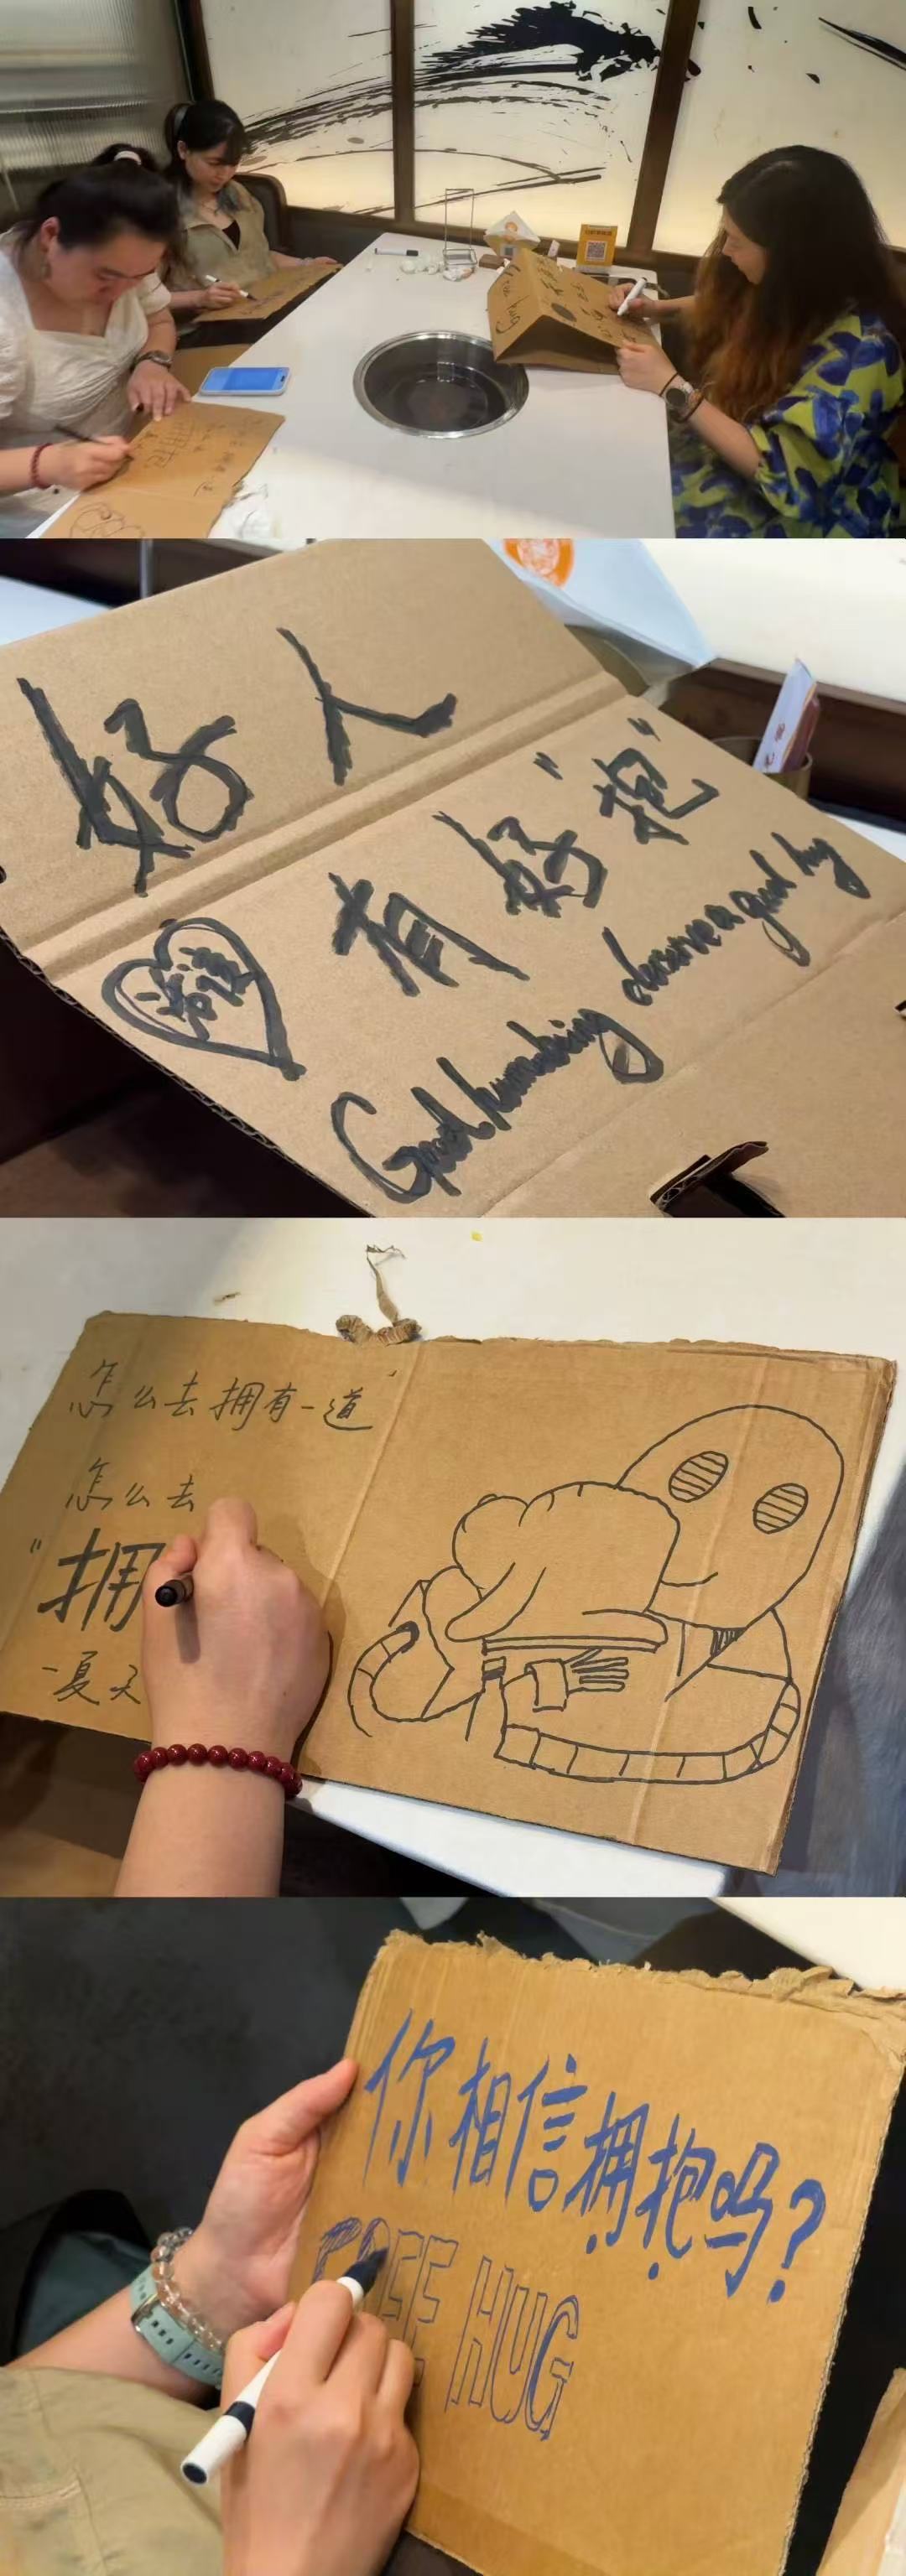 好人
有好“抱”
Good humanbeing deserve a good hug
怎么去拥有一道
怎么去
“拥
一夏天
你相信拥抱吗?
FREE HUG